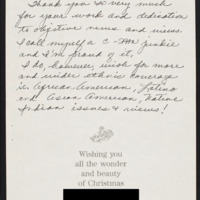 Thank you so very much
for your work and dedication
to objective news and views.
I call myself a C-SPAN junkie
and I'm proud of it.
I do, however, wish for more
and wider ethnic coverage
i.e. African American, Latino
and Asian American, Native
Indian issues & views!
Wishing you
all the wonder
and beauty
of Christmas